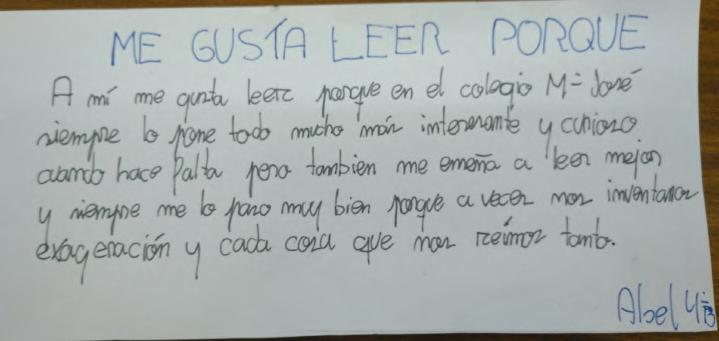 ME GUSTA LEER PORQUE
A mí me gusta leer porque en el colegio Mª José
siempre lo pone todo mucho más interesante y curioso
cuando hace falta pero tambien me enseña a leer mejor
y siempre me lo paso muy bien porque a veces nos inventamos
exageración y cada cosa que nos reímos tanto.
Abel 4ºB